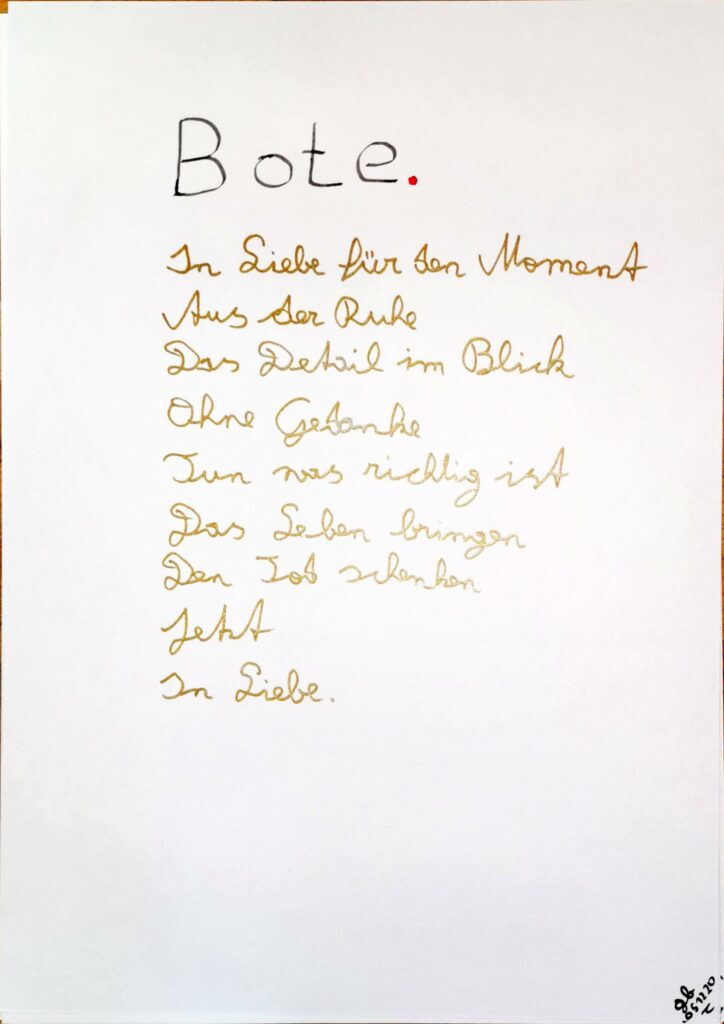 Bote.
In Liebe für den Moment
Aus der Ruhe
Das Detail im Blick
Ohne Gedanke
Tun was richtig ist
Das Leben bringen
Den Tod schenken
Jetzt
In Liebe.